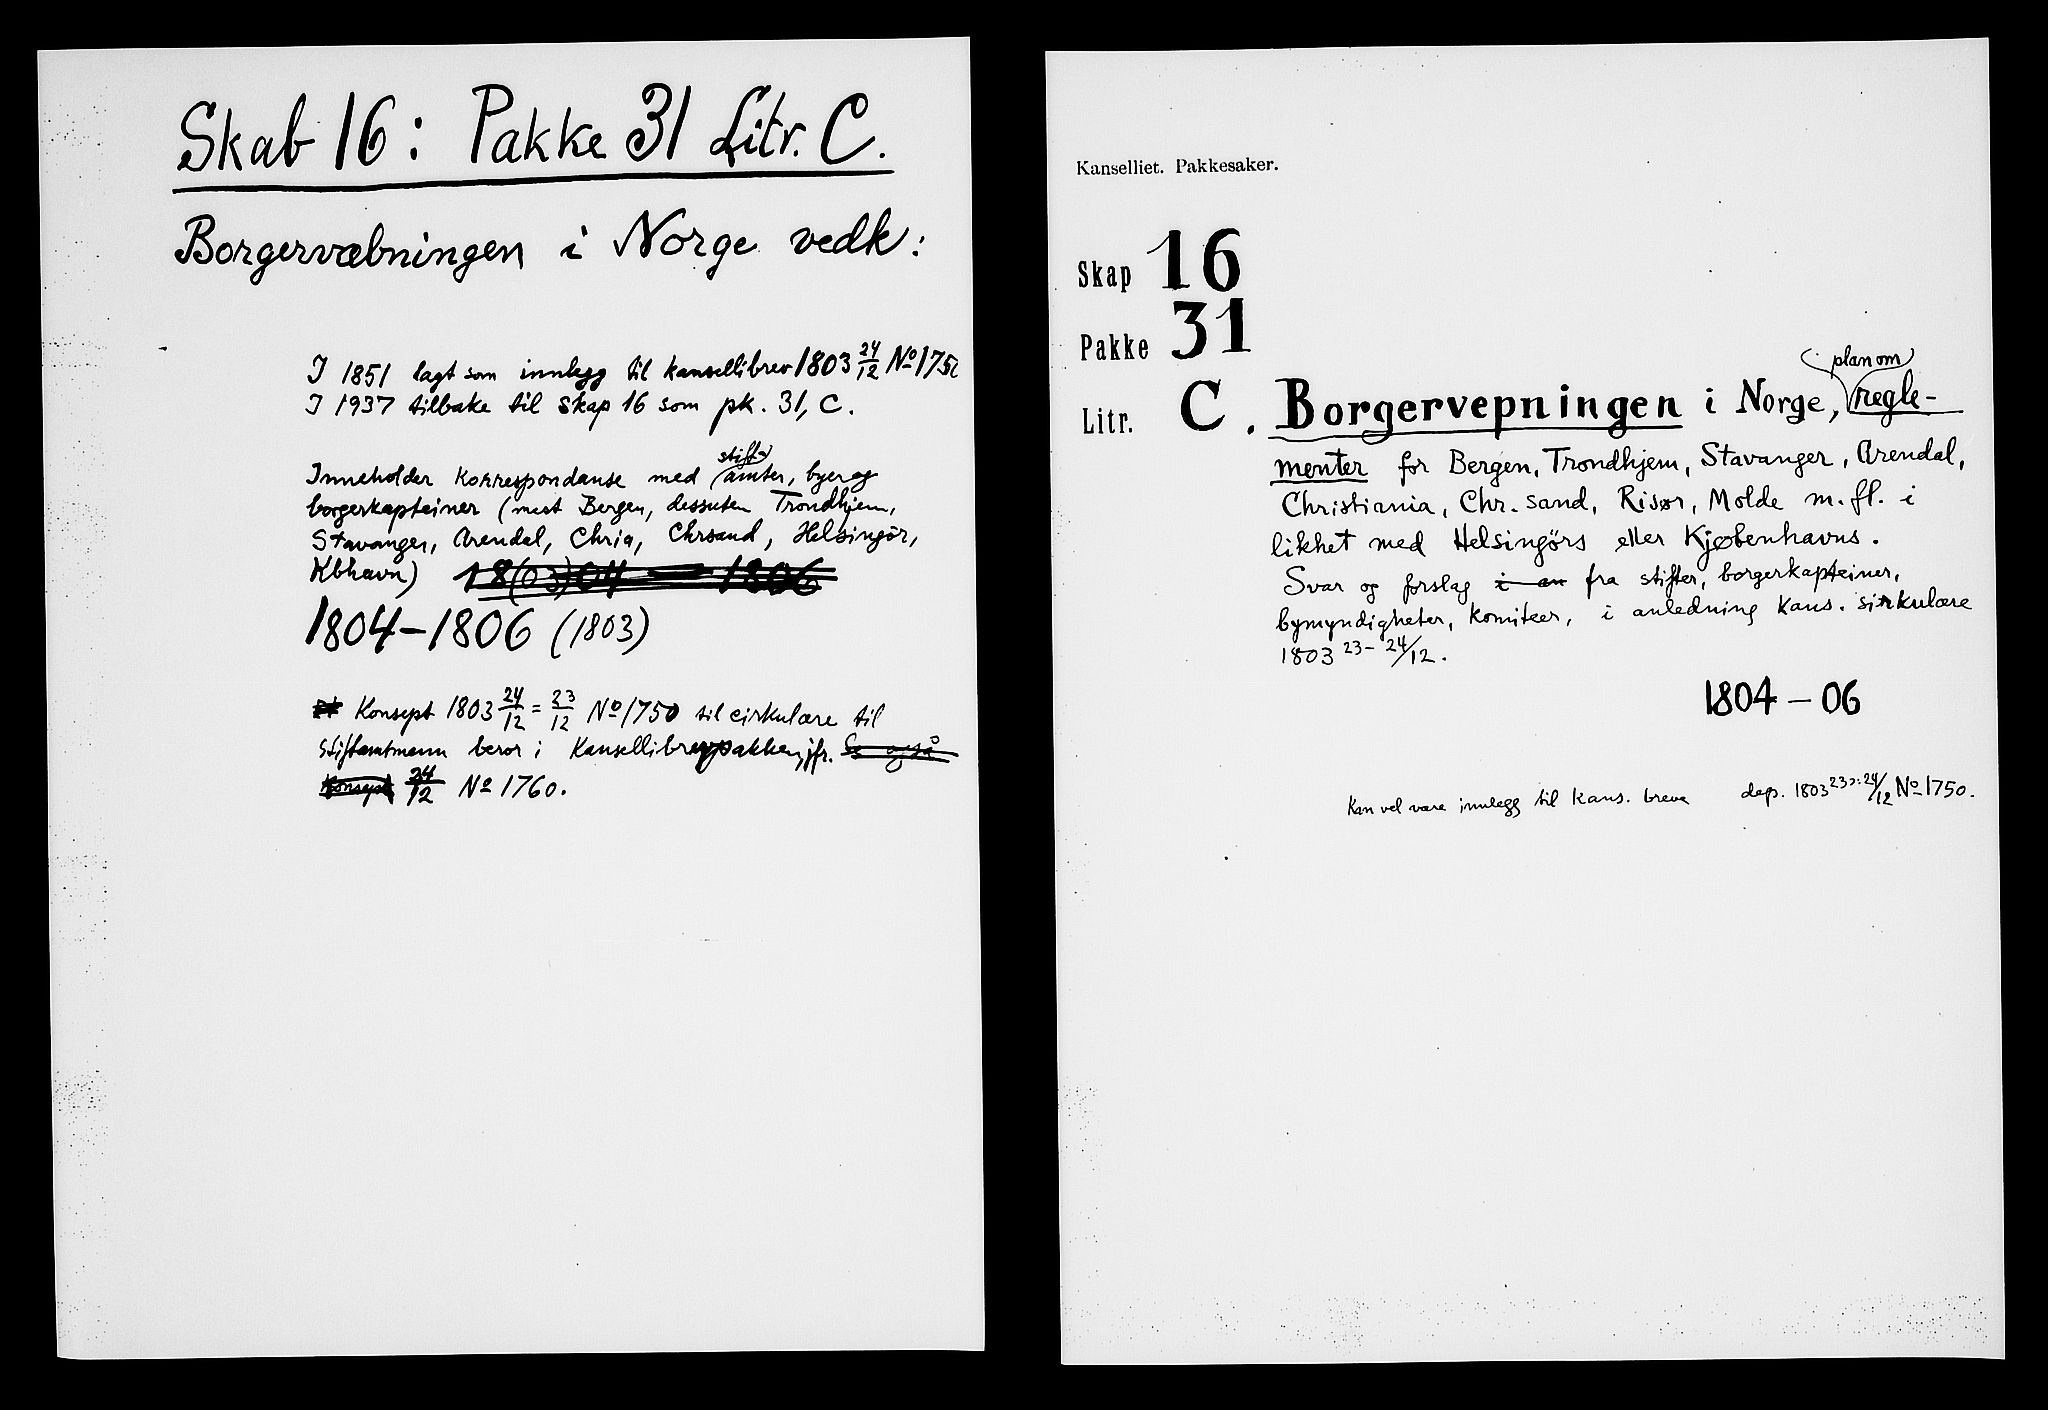 Skab 16: Pakke 31 Litr. C.
Borgervæbningen i Norge vedk:
I 1851 lagt som innlegg til kansellibrev 1803 24/12 No 175
I 1937 tilbake til skap 16 som pk. 31, C.
stift
Inneholder korrespondanse med amter, byer og
borgerkapteiner (mest Bergen, dessuten Trondhjem,
Stavanger, Arendal, Chria, Chrsand, Helsingör,
Kbhavn) 18(03)04 — 1806
1804-1806 (1803)
Konsept 1803 24/12 = 23/12 No 1750 til cirkulære til
Stiftamtmenn beror i Kansellibrevpakken, jfr. Se også
Konsept 24/12 No 1760.
Kanselliet. Pakkesaker.
Skap 16
Pakke 31
(plan om)
Litr. C. Borgervepningen i Norge, regle-
menter for Bergen, Trondhjem, Stavanger, Arendal,
Christiania, Chr.sand, Risør, Molde m.fl. i
likhet med Helsingörs eller Kjøbenhavns.
Svar og forslag i an fra stifter, borgerkapteiner,
bymyndigheter, komiteer, i anledning Kans. sirkulære
1803 23-24/12.
1804-06
Kan vel være innlegg til Kans. breve dep. 1803 23>: 24/12 No 1750.